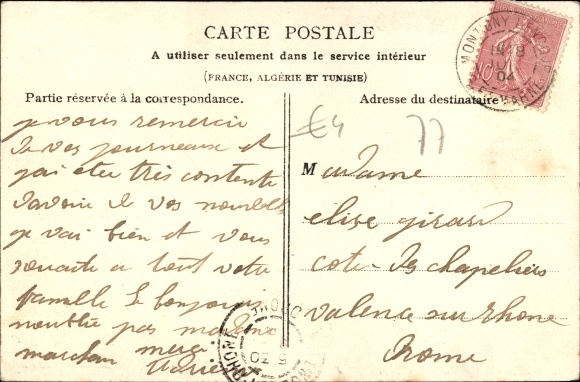 CARTE POSTALE
A utiliser seulement dans le service intérieur
(FRANCE, ALGÉRIE ET TUNISIE)
Partie réservée à la correspondance.
Adresse du destinataire
je vous remercie
de vos journeaux et
j'ai éter très contente
davoir de vos nouvelles
je vai bien et vous
souaite a tout votre
famille le bonjour
noublié pas madame
marchan merci
Marie
€4
77
Madame
élise girard
cote des chapeliers
valence sur Rhone
Drome
MONTIGNY
04
MARNE
DROME